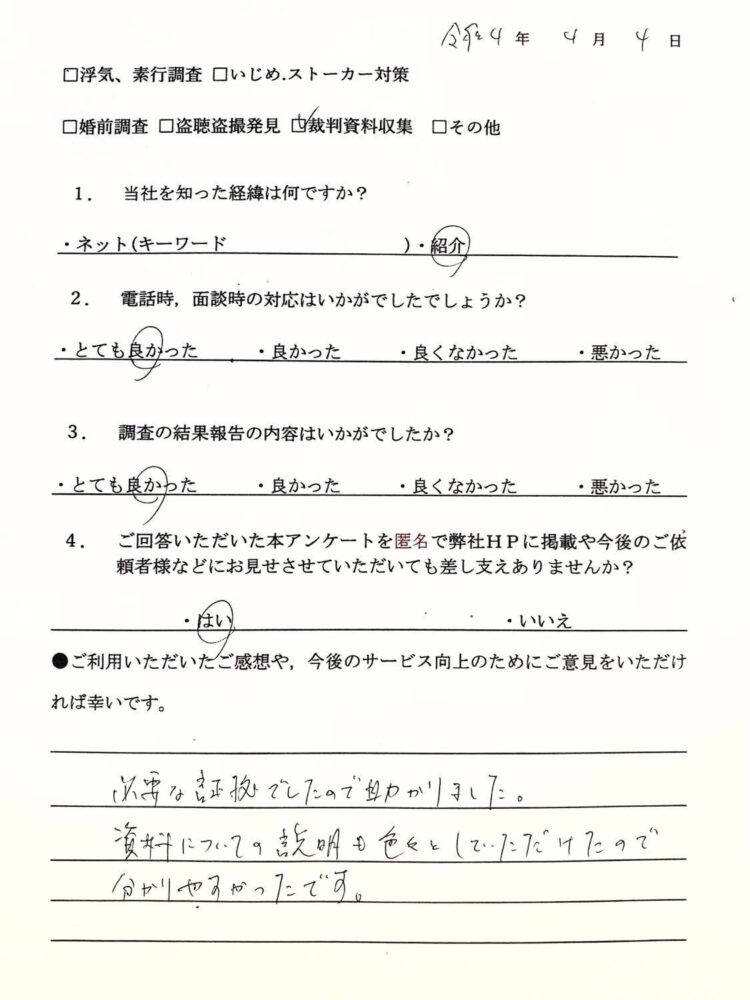 令和4年 4月 4日
□浮気、素行調査 □いじめ.ストーカー対策
□婚前調査 □盗聴盗撮発見 ☑裁判資料収集 □その他
1. 当社を知った経緯は何ですか?
・ネット(キーワード )・紹介
2. 電話時,面談時の対応はいかがでしたでしょうか?
・とても良かった ・良かった ・良くなかった ・悪かった
3. 調査の結果報告の内容はいかがでしたか?
・とても良かった ・良かった ・良くなかった ・悪かった
4. ご回答いただいた本アンケートを匿名で弊社HPに掲載や今後のご依
頼者様などにお見せさせていただいても差し支えありませんか?
・はい ・いいえ
●ご利用いただいたご感想や,今後のサービス向上のためにご意見をいただけ
れば幸いです。
必要な証拠でしたので助かりました。
資料についての説明も色々としていただけたので
分かりやすかったです。